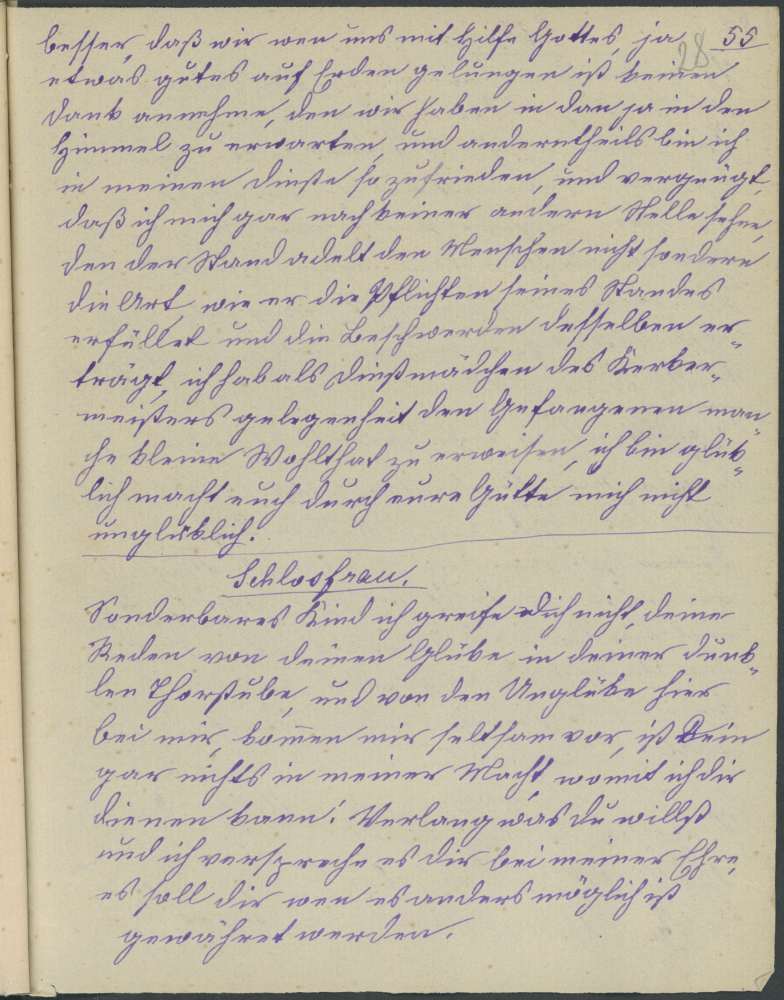 besser, daß wir wen uns mit Hilfe Gottes, ja 55
28
etwas gutes auf Erden gelungen ist keinen
Dank annehme, den wir haben in dan ja in den
Himmel zu erwarten, und anderntheils bin ich
in meinen Dienste so zufrieden, und vergnügt,
daß ich mich gar nach keiner andern Stelle sehne,
den der Stand adelt den Menschen nicht, sondern
die Art, wie er die Pflichten seines Standes
erfüllet und die Beschwerden desselben er„
trägt, ich hab als Dinstmädchen des Kerker„
meisters gelegenheit den Gefangenen man„
che kleine Wohlthat zu erweisen, ich bin glük„
lich macht euch durch eure Gütte mich nicht
unglüklich.
Schlosfrau.
Sonderbares Kind ich greife dich nicht, deine
Reden von deinen Glüke in deiner dunk„
len Thorstube, und von den Unglüke hier
bei mir, kom̅en mir seltsam vor, ist Dein
gar nichts in meiner Macht, womit ich dir
dienen kann! Verlang was du willst
und ich verspreche es dir bei meiner Ehre,
es soll dir wen es anders möglich ist
gewähret werden.